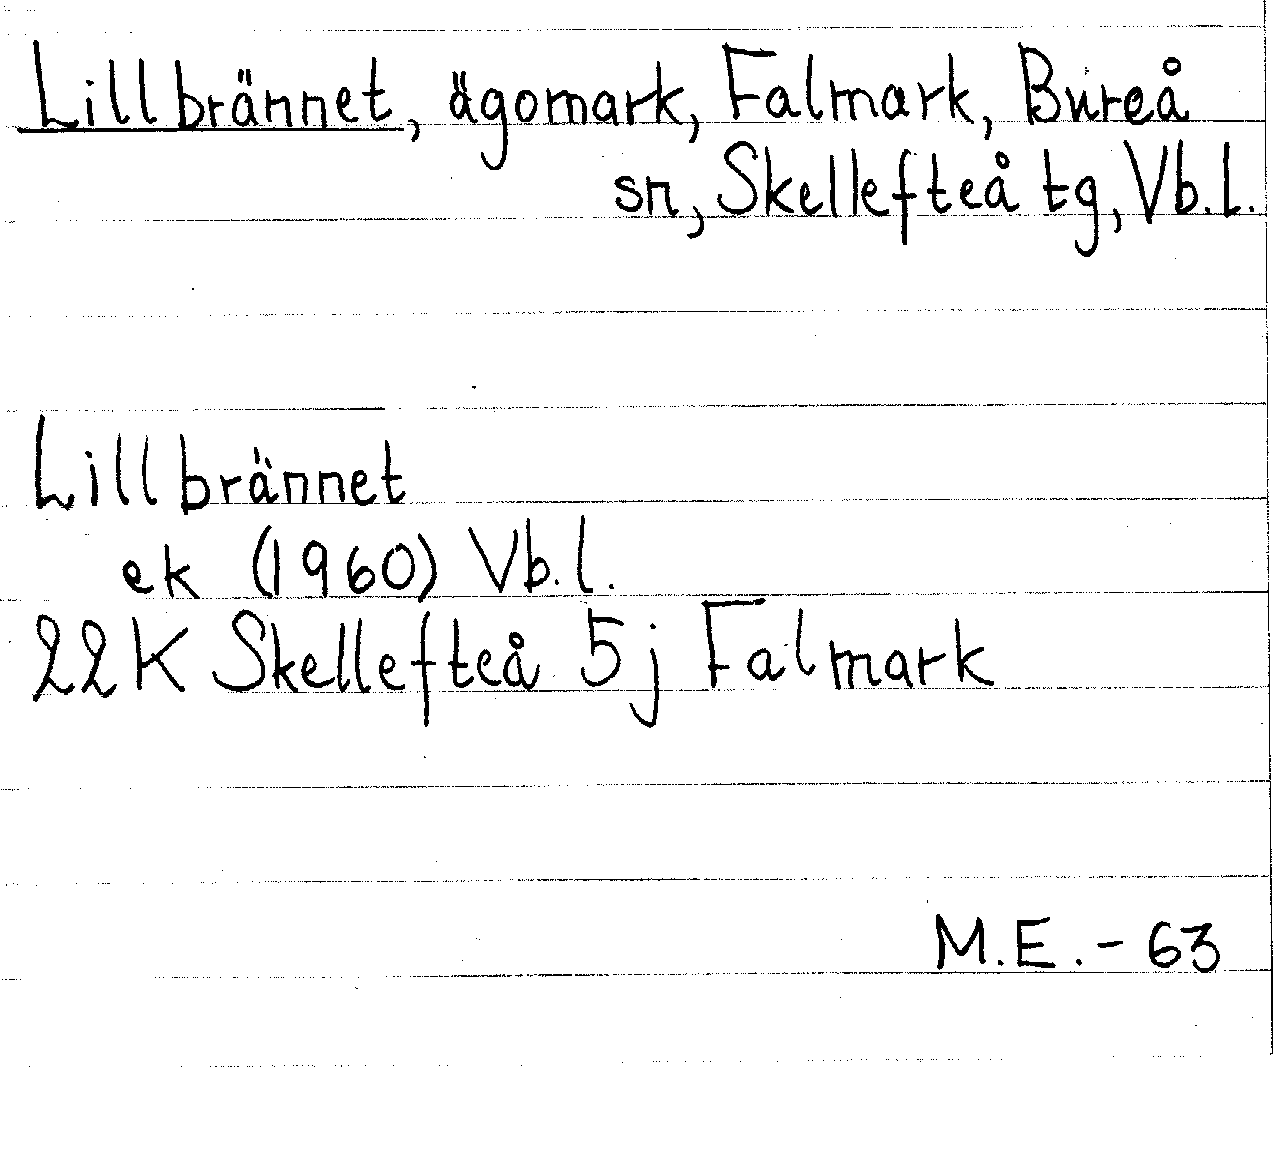 Lillbrännet, ägomark, Falmark, Bureå
sn, Skellefteå tg, Vb.l.
Lillbrännet
ek (1960) Vb.l.
22K Skellefteå 5j Falmark
M.E.-63